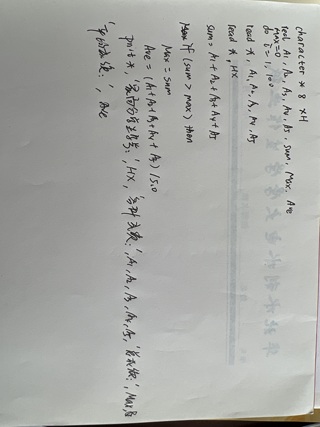 character * 8 XH
real A1, A2, A3, A4, A5, sum, Max, Ave
MAX=0
do i=1,100
read *, A1, A2, A3, A4, A5
read *, HX
sum= A1+A2+A3+A4+A5
if (sum > max) then
Max = sum
Ave = (A1+A2+A3+A4+A5)/5.0
print *, '最高分学生学号:', HX, '各科成绩:', A1, A2, A3, A4, A5, '总成绩:', Max
'平均成绩:', Ave